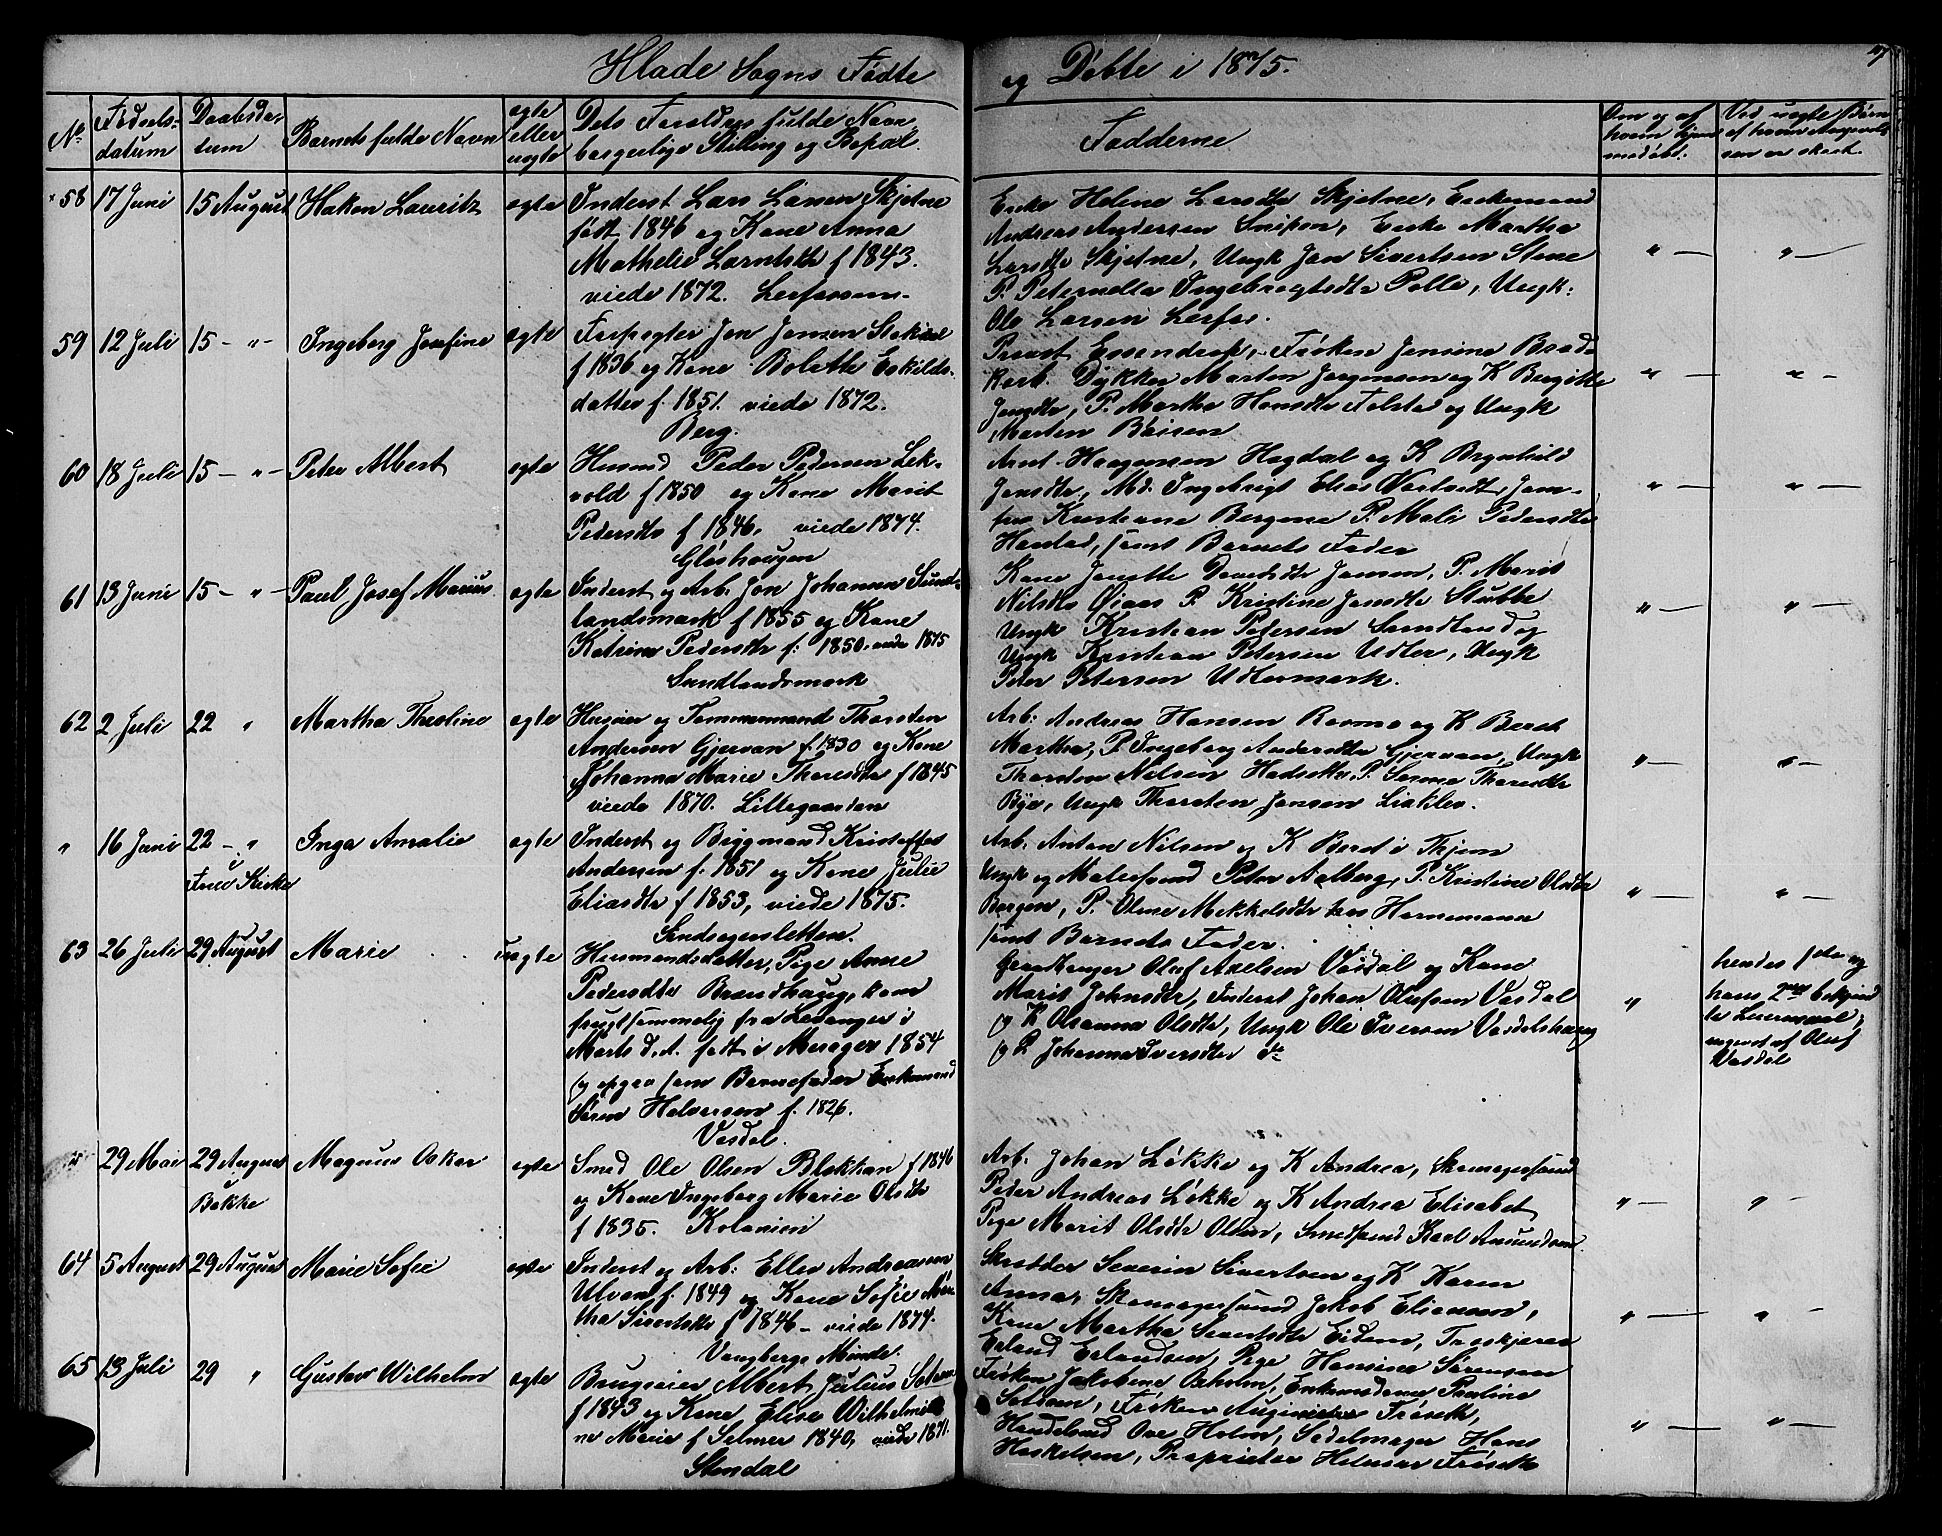 Hlade Sogns Fødte og Døbte i 1875.
No Fødselsdatum Daabsdatum Barnets fulde Navn ægte eller uægte Dets Forældres fulde Navn, borgerlige Stilling og Bopæl. Fadderne Om og af hvem hjemmedøbt. Ved uægte Børn af hvem Angivelsen er skeet.
58 17 Juni 15 August Haken Lauritz ægte
Inderst Lars Larsen Skjetne
født 1846 og Kone Anna
Mathelie Larntsdtr f 1843.
viede 1872.
Enke Helene Larsdtr Skjetne, Enkemand
Andreas Andersen Enke Martha
Larsdtr Skjetne, Ungk Jon Sivertsen Stene
P. Peternella Ingebrigtsdtr Ungk:
Ole Larsen
59 12 Juli 15 — " — Ingeborg Josefine ægte
Forpagter Jon Jonsen
f 1836 og Kone Bolette Eskilds-
datter f. 1851. viede 1872.
Berg.
Provst Essendrop, Frøken Jensine
Dykker Morten Jørgensen og K Bergitte
Jonsdtr, P. Martha Hansdtr og Ungk
Morten
60 18 Juli 15 — " — Peter Albert ægte
Husmd Peder Pedersen Lek-
vold f 1850 og Kone Marit
Pedersdtr f 1846, viede 1874.
Gløshaugen
Arnt Haagensen Hogdal og K Brynhild
Jonsdtr, Md. Ingebrigt Elias Jom-
fru Kristiane Bergene P. Mali Pedersdtr
samt Barnets Fader
61 13 Juni 15 — " — Paul Josef Marius ægte
Inderst og Arb. Jon Johansen Sund-
landsmark f 1855 og Kone
Katrine Pedersdtr f: 1850. viede 1875
Sundlandsmark
Kone Jonette Jensen, P. Marit
Nilsdtr Øiaas P. Kristine Jonsdtr Stubbe
Ungk Kristian Petersen Sundland og
Ungk Kristian Petersen Udler, Ungk
Peter Petersen Udlermark.
62 2 Juli 22 " Martha Theoline ægte
Huseier og Tømmermand Thorsten
Andersen Gjervan f. 1830 og Kone
Johanna Marie f 1845
viede 1870. Lillegaarden
Arb: Andreas Hansen og K Beret
Martha, P. Ingeborg Andersdtr Gjervan, Ungk
Thorsten Nilsen P.
Bye, Ungk Thorsten Jensen
" 16 Juni 22 — " Inga Amalie ægte
Frue Kirke
Inderst og Bygmand Kristoffer
Andersen f. 1851 og Kone Julie
Eliasdtr f 1853, viede 1875.
Arb. Anton Nilsen og K Beret
Ungk og Malersvend Peter Aalberg, P. Kristine Olsdtr
Bergen, P. Oline Mikkelsdtr hos Hornemann
samt Barnets Fader.
63 26 Juli 29 August Marie uægte
Husmandsdatter, Pige Anne
Pedersdtr Brandhaug, kom
frugtsommelig fra Levanger i
Marts d. A. født i Merager 1854
og opgav som Barnefader Enkemand
Søren Halvorsen f. 1826.
Vasdal.
Oluf Axelsen Vasdal og Kone
Marit Johnsdtr, Inderst Johan Olufsen Vasdal
og K Oleanna Olsdtr, Ungk Ole Iversen Vasdalshaug
og P Johanna Iversdtr do
hendes 1ste og
hans 2det bekjend
te Leiermaal,
angivet af Oluf
Vasdal
" 29 Mai 29 August Magnus Oskar ægte
Bakke
Smed Ole Olsen Blekkan f 1846
og Kone Ingeborg Marie Olsdtr
f 1835. Kolonien
Arb. Johan Løkke og K Andrea, Skomagersvend
Peder Andreas Løkke og K Andrea Elisabet
Pige Marit Olsdtr Olsen, Smedsvend Karl Amundsen.
64 5 August 29 August Marie Sofie ægte
Inderst og Arb: Ellev Andreassen
Ulvan f. 1849 og Kone Sofie Mar-
tha Sivertsdtr f 1846 — viede 1874.
Vangbergs Minde.
Skrædder Severin Sivertsen og K Karen
Anna, Skomagersvend Jakob Eliassen,
Kone Martha Sivertsdtr Eidem, Træskjærer
Erland Erlandsen, Pige Hansine Sørensen
65 13 Juli 29 " Gustav Wilhelm ægte
Brugseier Albert Julius
f 1843 og Kone Elise Wilhelmi
ne Marie f Selmer 1840, viede 1871.
Stendal
Frøken Jakobine Oxholm, Enkemadame Pauline
Frøken Frøseth,
Handelsmd Ove Holm, Sadelmager Hans
Haskelsen, Proprietær Helmer Frøseth